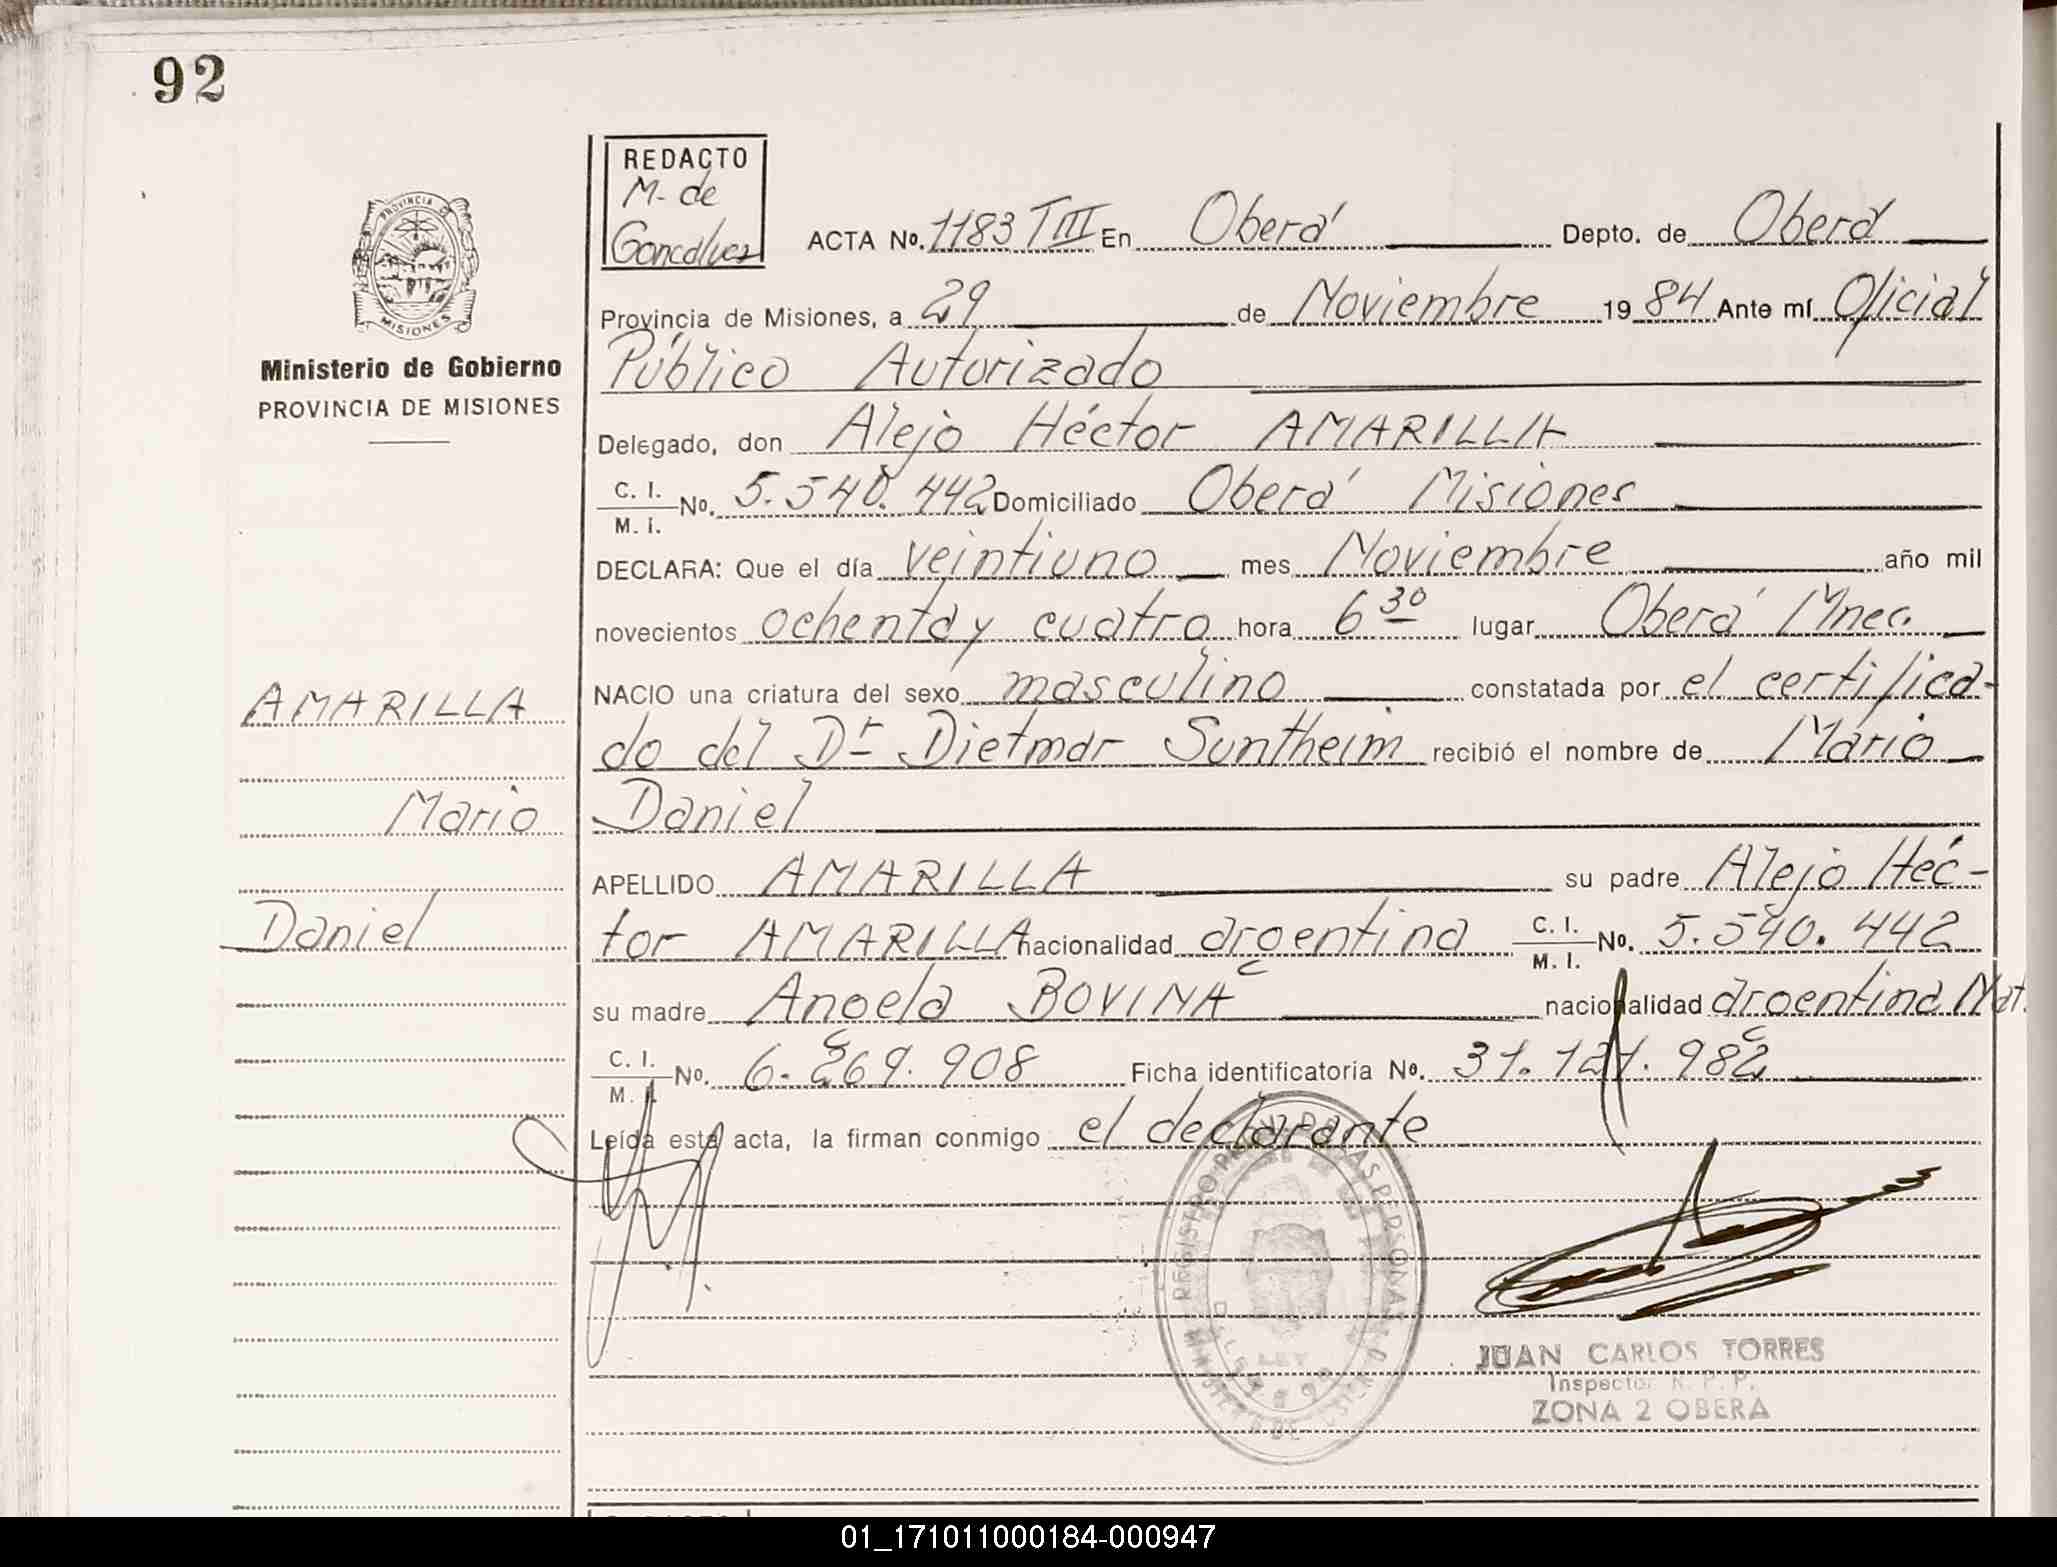 92
REDACTO
M. de
Goncalvez
PROVINCIA
MISIONES
Ministerio de Gobierno
PROVINCIA DE MISIONES
ACTA No. 1183 TIII En Oberá Depto. de Oberá
Provincia de Misiones, a 29 de Noviembre 1984 Ante mí Oficial
Público Autorizado
Delegado, don Alejo Héctor AMARILLA
C. I. M. I. No. 5.540.442 Domiciliado Oberá Misiones
DECLARA: Que el día veintiuno mes Noviembre año mil
novecientos ochenta y cuatro hora 6 30 lugar Oberá Mnes.
NACIO una criatura del sexo masculino constatada por el certifica-
do del Dr Dietmar Suntheim recibió el nombre de Mario
Daniel
APELLIDO AMARILLA su padre Alejo Héc-
tor AMARILLA nacionalidad argentina C. I. M. I. No. 5.540.442
su madre Angela BOVINA nacionalidad argentina Mat.
C. I. M. I. No. 6.269.908 Ficha identificatoria No. 31.121.982
Leída esta acta, la firman conmigo el declarante
AMARILLA
Mario
Daniel
JUAN CARLOS TORRES
Inspector R. P. P.
ZONA 2 OBERA
01_171011000184-000947